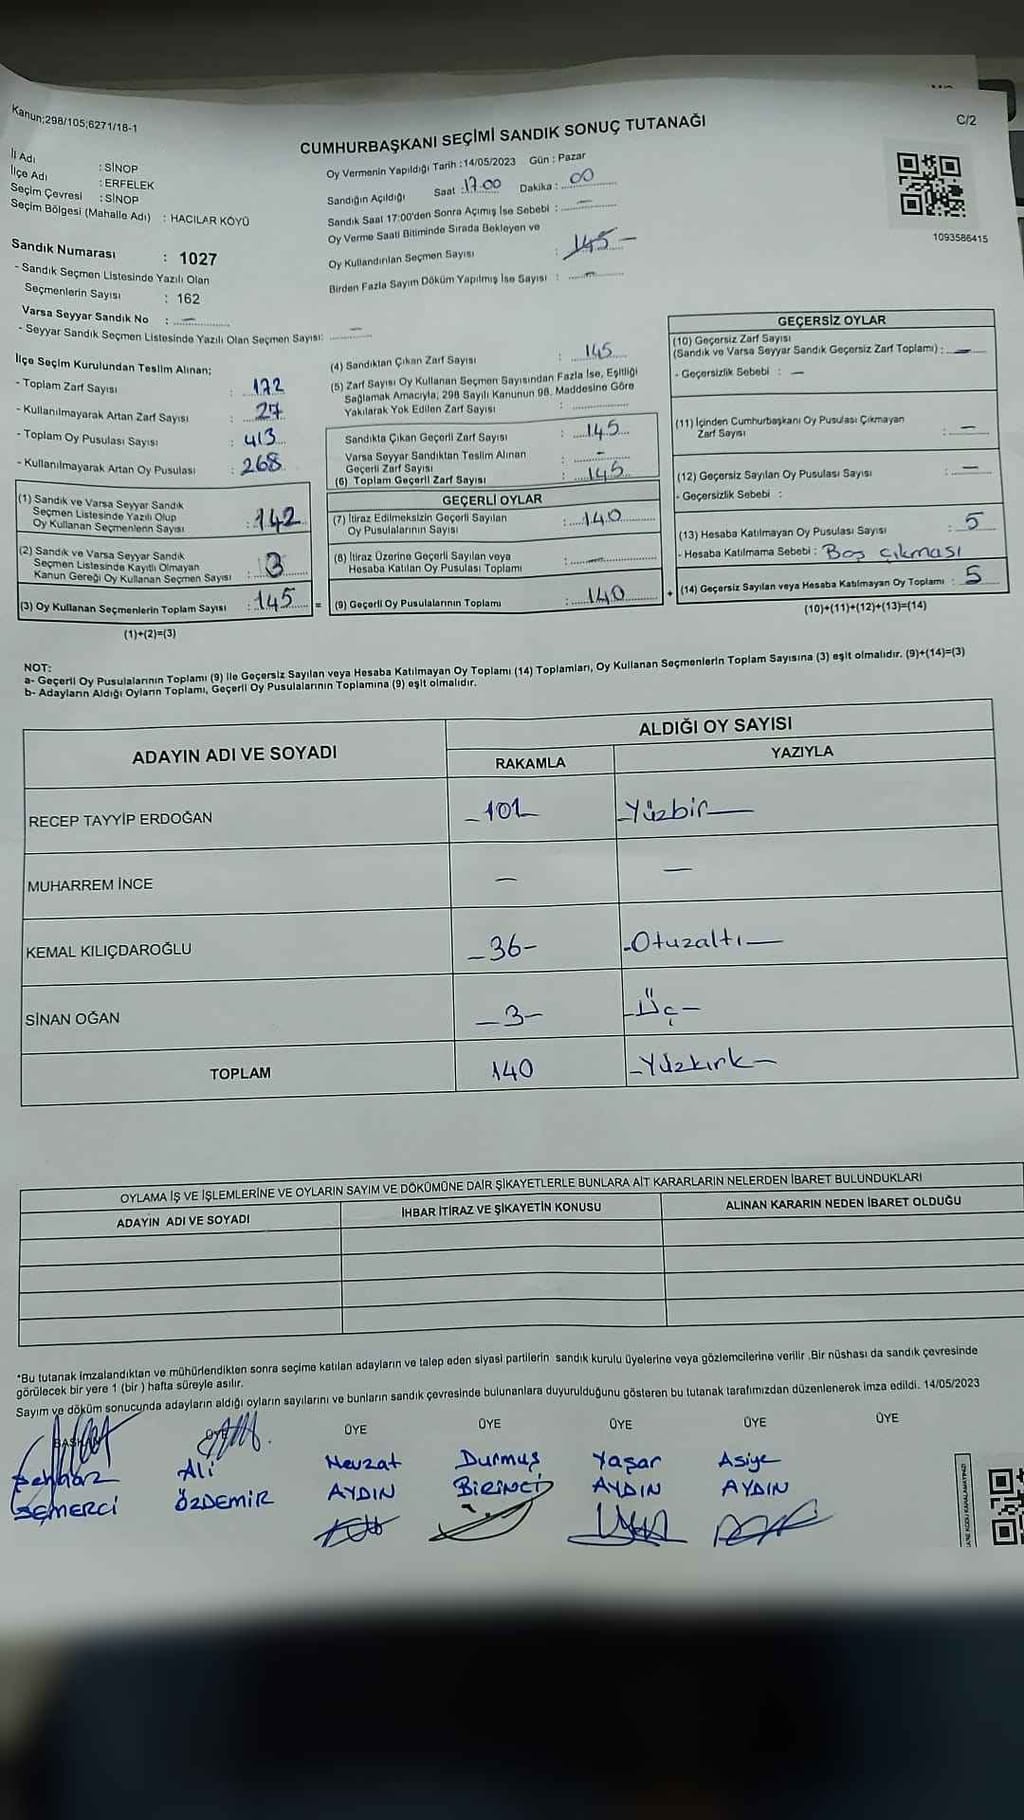 Kanun;298/105;6271/18-1
C/2
CUMHURBAŞKANI SEÇİMİ SANDIK SONUÇ TUTANAĞI
İl Adı : SİNOP
İlçe Adı : ERFELEK
Seçim Çevresi : SİNOP
Seçim Bölgesi (Mahalle Adı) : HACILAR KÖYÜ
Oy Vermenin Yapıldığı Tarih :14/05/2023 Gün : Pazar
Sandığın Açıldığı Saat :17.00 Dakika : 00
Sandık Saat 17:00'den Sonra Açımış İse Sebebi : —
Oy Verme Saati Bitiminde Sırada Bekleyen ve
Oy Kullandırılan Seçmen Sayısı : 145 —
Birden Fazla Sayım Döküm Yapılmış İse Sayısı : —
1093586415
Sandık Numarası : 1027
- Sandık Seçmen Listesinde Yazılı Olan
Seçmenlerin Sayısı : 162
Varsa Seyyar Sandık No : —
- Seyyar Sandık Seçmen Listesinde Yazılı Olan Seçmen Sayısı: —
İlçe Seçim Kurulundan Teslim Alınan;
- Toplam Zarf Sayısı : 172
- Kullanılmayarak Artan Zarf Sayısı : 27
- Toplam Oy Pusulası Sayısı : 413
- Kullanılmayarak Artan Oy Pusulası : 268
(1) Sandık ve Varsa Seyyar Sandık
Seçmen Listesinde Yazılı Olup
Oy Kullanan Seçmenlerin Sayısı : 142
(2) Sandık ve Varsa Seyyar Sandık
Seçmen Listesinde Kayıtlı Olmayan
Kanun Gereği Oy Kullanan Seçmen Sayısı : 3
(3) Oy Kullanan Seçmenlerin Toplam Sayısı : 145 =
(1)+(2)=(3)
(4) Sandıktan Çıkan Zarf Sayısı : 145
(5) Zarf Sayısı Oy Kullanan Seçmen Sayısından Fazla İse, Eşitliği
Sağlamak Amacıyla, 298 Sayılı Kanunun 98. Maddesine Göre
Yakılarak Yok Edilen Zarf Sayısı :
Sandıkta Çıkan Geçerli Zarf Sayısı : 145
Varsa Seyyar Sandıktan Teslim Alınan
Geçerli Zarf Sayısı : —
(6) Toplam Geçerli Zarf Sayısı : 145
GEÇERLİ OYLAR
(7) İtiraz Edilmeksizin Geçerli Sayılan
Oy Pusulalarının Sayısı : 140
(8) İtiraz Üzerine Geçerli Sayılan veya
Hesaba Katılan Oy Pusulası Toplamı : —
(9) Geçerli Oy Pusulalarının Toplamı : 140 +
GEÇERSİZ OYLAR
(10) Geçersiz Zarf Sayısı
(Sandık ve Varsa Seyyar Sandık Geçersiz Zarf Toplamı) : —
- Geçersizlik Sebebi : —
(11) İçinden Cumhurbaşkanı Oy Pusulası Çıkmayan
Zarf Sayısı : —
(12) Geçersiz Sayılan Oy Pusulası Sayısı : —
- Geçersizlik Sebebi :
(13) Hesaba Katılmayan Oy Pusulası Sayısı : 5
- Hesaba Katılmama Sebebi : Boş çıkması
(14) Geçersiz Sayılan veya Hesaba Katılmayan Oy Toplamı : 5
(10)+(11)+(12)+(13)=(14)
NOT:
a- Geçerli Oy Pusulalarının Toplamı (9) ile Geçersiz Sayılan veya Hesaba Katılmayan Oy Toplamı (14) Toplamları, Oy Kullanan Seçmenlerin Toplam Sayısına (3) eşit olmalıdır. (9)+(14)=(3)
b- Adayların Aldığı Oyların Toplamı, Geçerli Oy Pusulalarının Toplamına (9) eşit olmalıdır.
ADAYIN ADI VE SOYADI
ALDIĞI OY SAYISI
RAKAMLA
YAZIYLA
RECEP TAYYİP ERDOĞAN — 101 — — Yüzbir —
MUHARREM İNCE — —
KEMAL KILIÇDAROĞLU — 36 — — Otuzaltı —
SİNAN OĞAN — 3 — — Üç —
TOPLAM 140 — Yüzkırk —
OYLAMA İŞ VE İŞLEMLERİNE VE OYLARIN SAYIM VE DÖKÜMÜNE DAİR ŞİKAYETLERLE BUNLARA AİT KARARLARIN NELERDEN İBARET BULUNDUKLARI
ADAYIN ADI VE SOYADI
İHBAR İTİRAZ VE ŞİKAYETİN KONUSU
ALINAN KARARIN NEDEN İBARET OLDUĞU
*Bu tutanak imzalandıktan ve mühürlendikten sonra seçime katılan adayların ve talep eden siyasi partilerin sandık kurulu üyelerine veya gözlemcilerine verilir .Bir nüshası da sandık çevresinde
görülecek bir yere 1 (bir ) hafta süreyle asılır.
Sayım ve döküm sonucunda adayların aldığı oyların sayılarını ve bunların sandık çevresinde bulunanlara duyurulduğunu gösteren bu tutanak tarafımızdan düzenlenerek imza edildi. 14/05/2023
BAŞKAN ÜYE ÜYE ÜYE ÜYE ÜYE ÜYE
Ali Nevzat Durmuş Yaşar Asiye
SEMERCİ ÖZDEMİR AYDIN BİRİNCİ AYDIN AYDIN